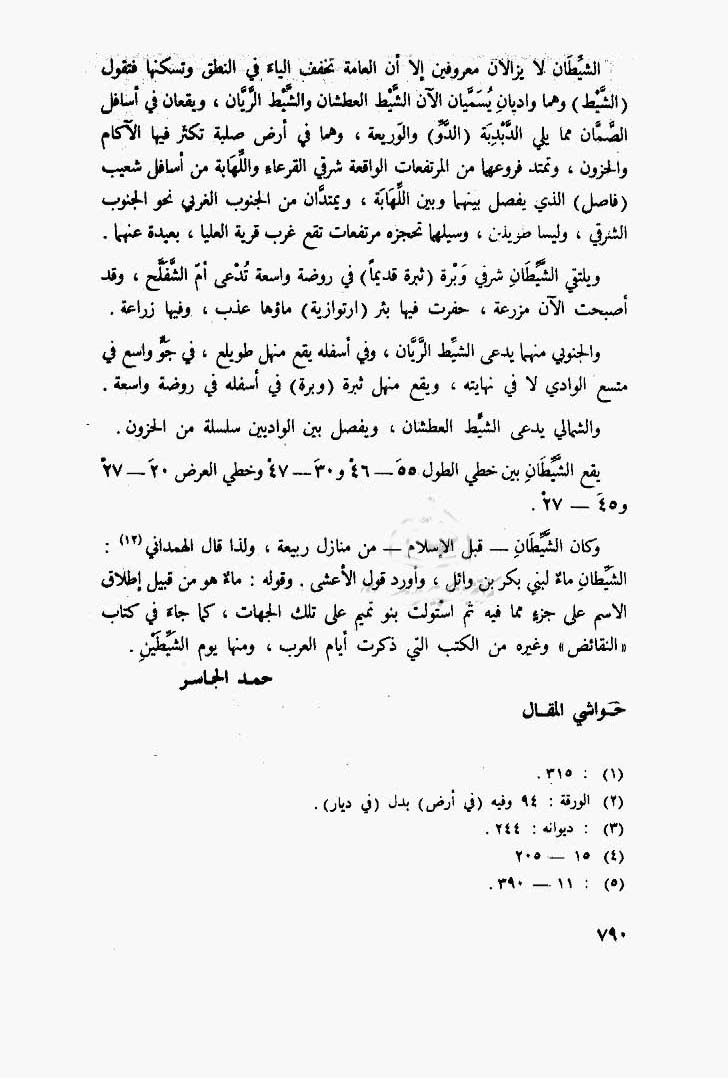 الشيِّطَان لا يزالان معروفين إلا أن العامة تخفف الياء في النطق وتسكنها فتقول
(الشَّيْط) وهما واديان يُسَمَّيان الآن الشَّيْط العطشان والشَّيْط الرَّيَّان ، ويقعان في أسافل
الصَّمَّان مما يلي الدَّبْدِبَة (الدَّوِّ) والوَريعة ، وهما في أرض صلبة تكثر فيها الآكام
والحزون ، وتمتد فروعها من المرتفعات الواقعة شرقي القرعاء واللِّهَابة من أسافل شعيب
(فاصل) الذي يفصل بينهما وبين اللِّهَابَة ، ويمتدَّان من الجنوب الغربي نحو الجنوب
الشرقي ، وليسا طويلين ، وسيلهما تحجزه مرتفعات تقع غرب قرية العليا ، بعيدة عنهما .
ويلتقي الشَّيِّطَانِ شرفي وَبْرة (ثبرة قديماً) في روضة واسعة تُدْعى أمّ الشَّفَلَّح ، وقد
أصبحت الآن مزرعة ، حفرت فيها بئر (ارتوازية) ماؤها عذب ، وفيها زراعة .
والجنوبي منهما يدعى الشيِّط الرَّيَّان ، وفي أسفله يقع منهل طويلع ، في جَوٍّ واسع في
متسع الوادي لا في نهايته ، ويقع منهل ثبرة (وبرة) في أسفله في روضة واسعة .
والشمالي يدعى الشيِّط العطشان ، ويفصل بين الواديين سلسلة من الحزون .
يقع الشَّيِّطَانِ بين خطي الطول ٥٥َ — ٤٦ْ و٣٠َ — ٤٧ْ وخطي العرض ٢٠َ — ٢٧ْ
و٤٥َ — ٢٧ْ .
وكان الشَّيِّطَانِ — قبل الإسلام — من منازل ربيعة ، ولذا قال الهمداني (١٢) :
الشَّيِّطانِ ماءٌ لبني بكر بن وائل ، وأورد قول الأعشى . وقوله : ماءٌ هو من قبيل إطلاق
الاسم على جزءٍ مما فيه ثم استولت بنو تميم على تلك الجهات ، كما جاءَ في كتاب
«النقائض» وغيره من الكتب التي ذكرت أيام العرب ، ومنها يوم الشَيِّطَيْنِ .
حمد الجاسر
حَواشي المقال
(١) : ٣١٥ .
(٢) الورقة : ٩٤ وفيه (في أرض) بدل (في ديار) .
(٣) : ديوانه : ٢٤٤ .
(٤) ١٥ — ٢٠٥
(٥) : ١١ — ٣٩٠ .
٧٩٠